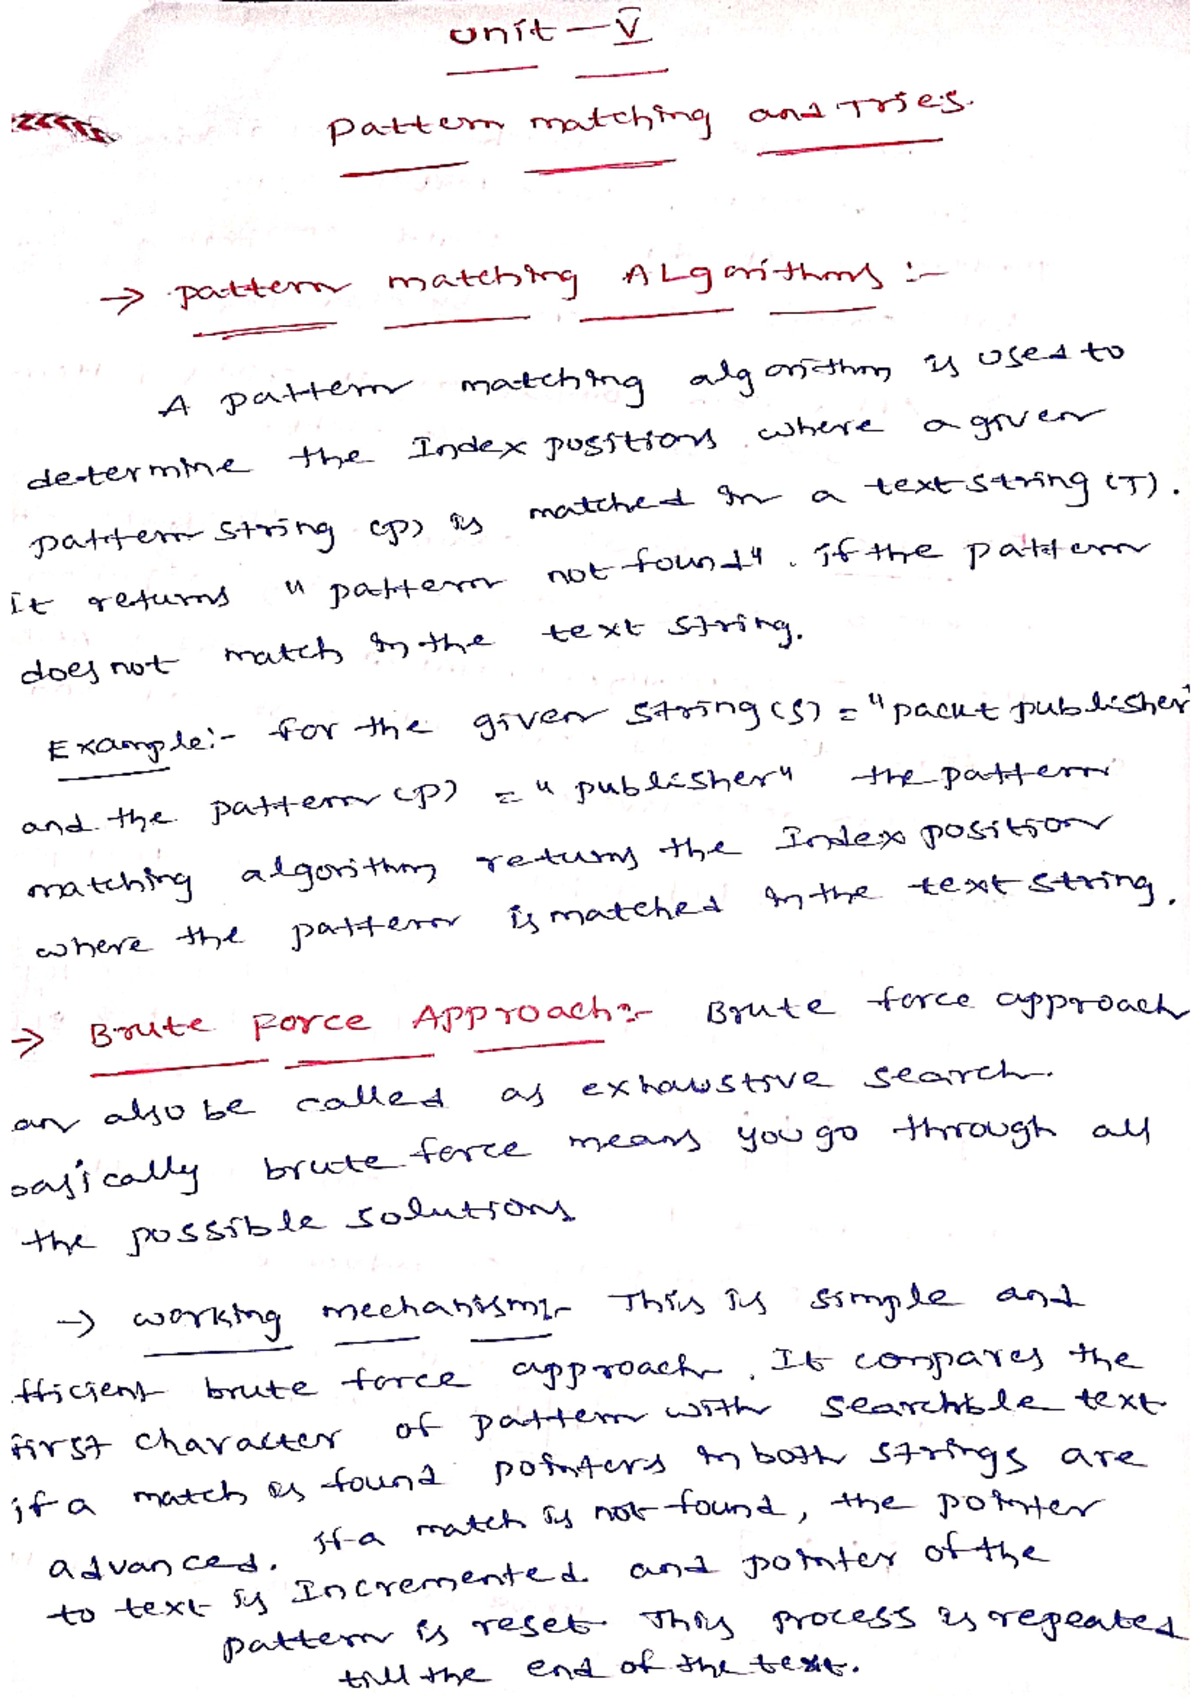 Unit - V
Pattern matching and Tries.
→ Pattern matching ALgorithms :-
A pattern matching algorithm is used to
determine the Index positions where a given
pattern string (P) is matched in a text string (T).
It returns " pattern not found". if the pattern
does not match in the text string.
Example:- for the given string (S) = "packt publisher"
and the pattern (P) = " publisher" the pattern
matching algorithm returns the Index position
where the pattern is matched in the text string.
→ Brute Force Approach:- Brute force approach
an also be called as exhaustive search.
basically brute force means you go through all
the possible solutions
→ working mechanism:- This is simple and
fficient brute force approach. It compares the
first character of pattern with searchble text.
if a match is found pointers in both strings are
advanced. if a match is not found, the pointer
to text is Incremented and pointer of the
pattern is reset. This process is repeated
till the end of the text.